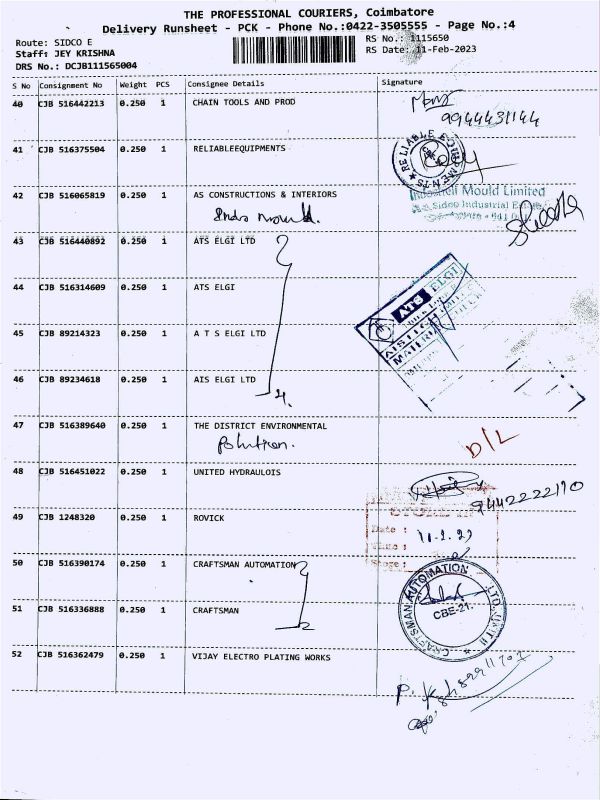 THE PROFESSIONAL COURIERS, Coimbatore
Delivery Runsheet - PCK - Phone No.:0422-3505555 - Page No.:4
Route: SIDCO E
RS No.: 1115650
Staff: JEY KRISHNA
RS Date: 11-Feb-2023
DRS No.: DCJB111565004
S No Consignment No Weight PCS Consignee Details Signature
40 CJB 516442213 0.250 1 CHAIN TOOLS AND PROD
9944431144
41 CJB 516375504 0.250 1 RELIABLEEQUIPMENTS
RELIABLE EQUIPMENTS
42 CJB 516065819 0.250 1 AS CONSTRUCTIONS & INTERIORS
Indo mould.
Indoshell Mould Limited
Sidco Industrial Estate
43 CJB 516440892 0.250 1 ATS ELGI LTD
44 CJB 516314609 0.250 1 ATS ELGI
ATS ELGI
45 CJB 89214323 0.250 1 A T S ELGI LTD
46 CJB 89234618 0.250 1 AIS ELGI LTD
4.
47 CJB 516389640 0.250 1 THE DISTRICT ENVIRONMENTAL
Polution.
D/L
48 CJB 516451022 0.250 1 UNITED HYDRAULOIS
9442222190
49 CJB 1248320 0.250 1 ROVICK
STORES
Date : 11.2.23
Time :
50 CJB 516390174 0.250 1 CRAFTSMAN AUTOMATION
51 CJB 516336888 0.250 1 CRAFTSMAN
2
CRAFTSMAN AUTOMATION LTD.
CBE-21.
52 CJB 516362479 0.250 1 VIJAY ELECTRO PLATING WORKS